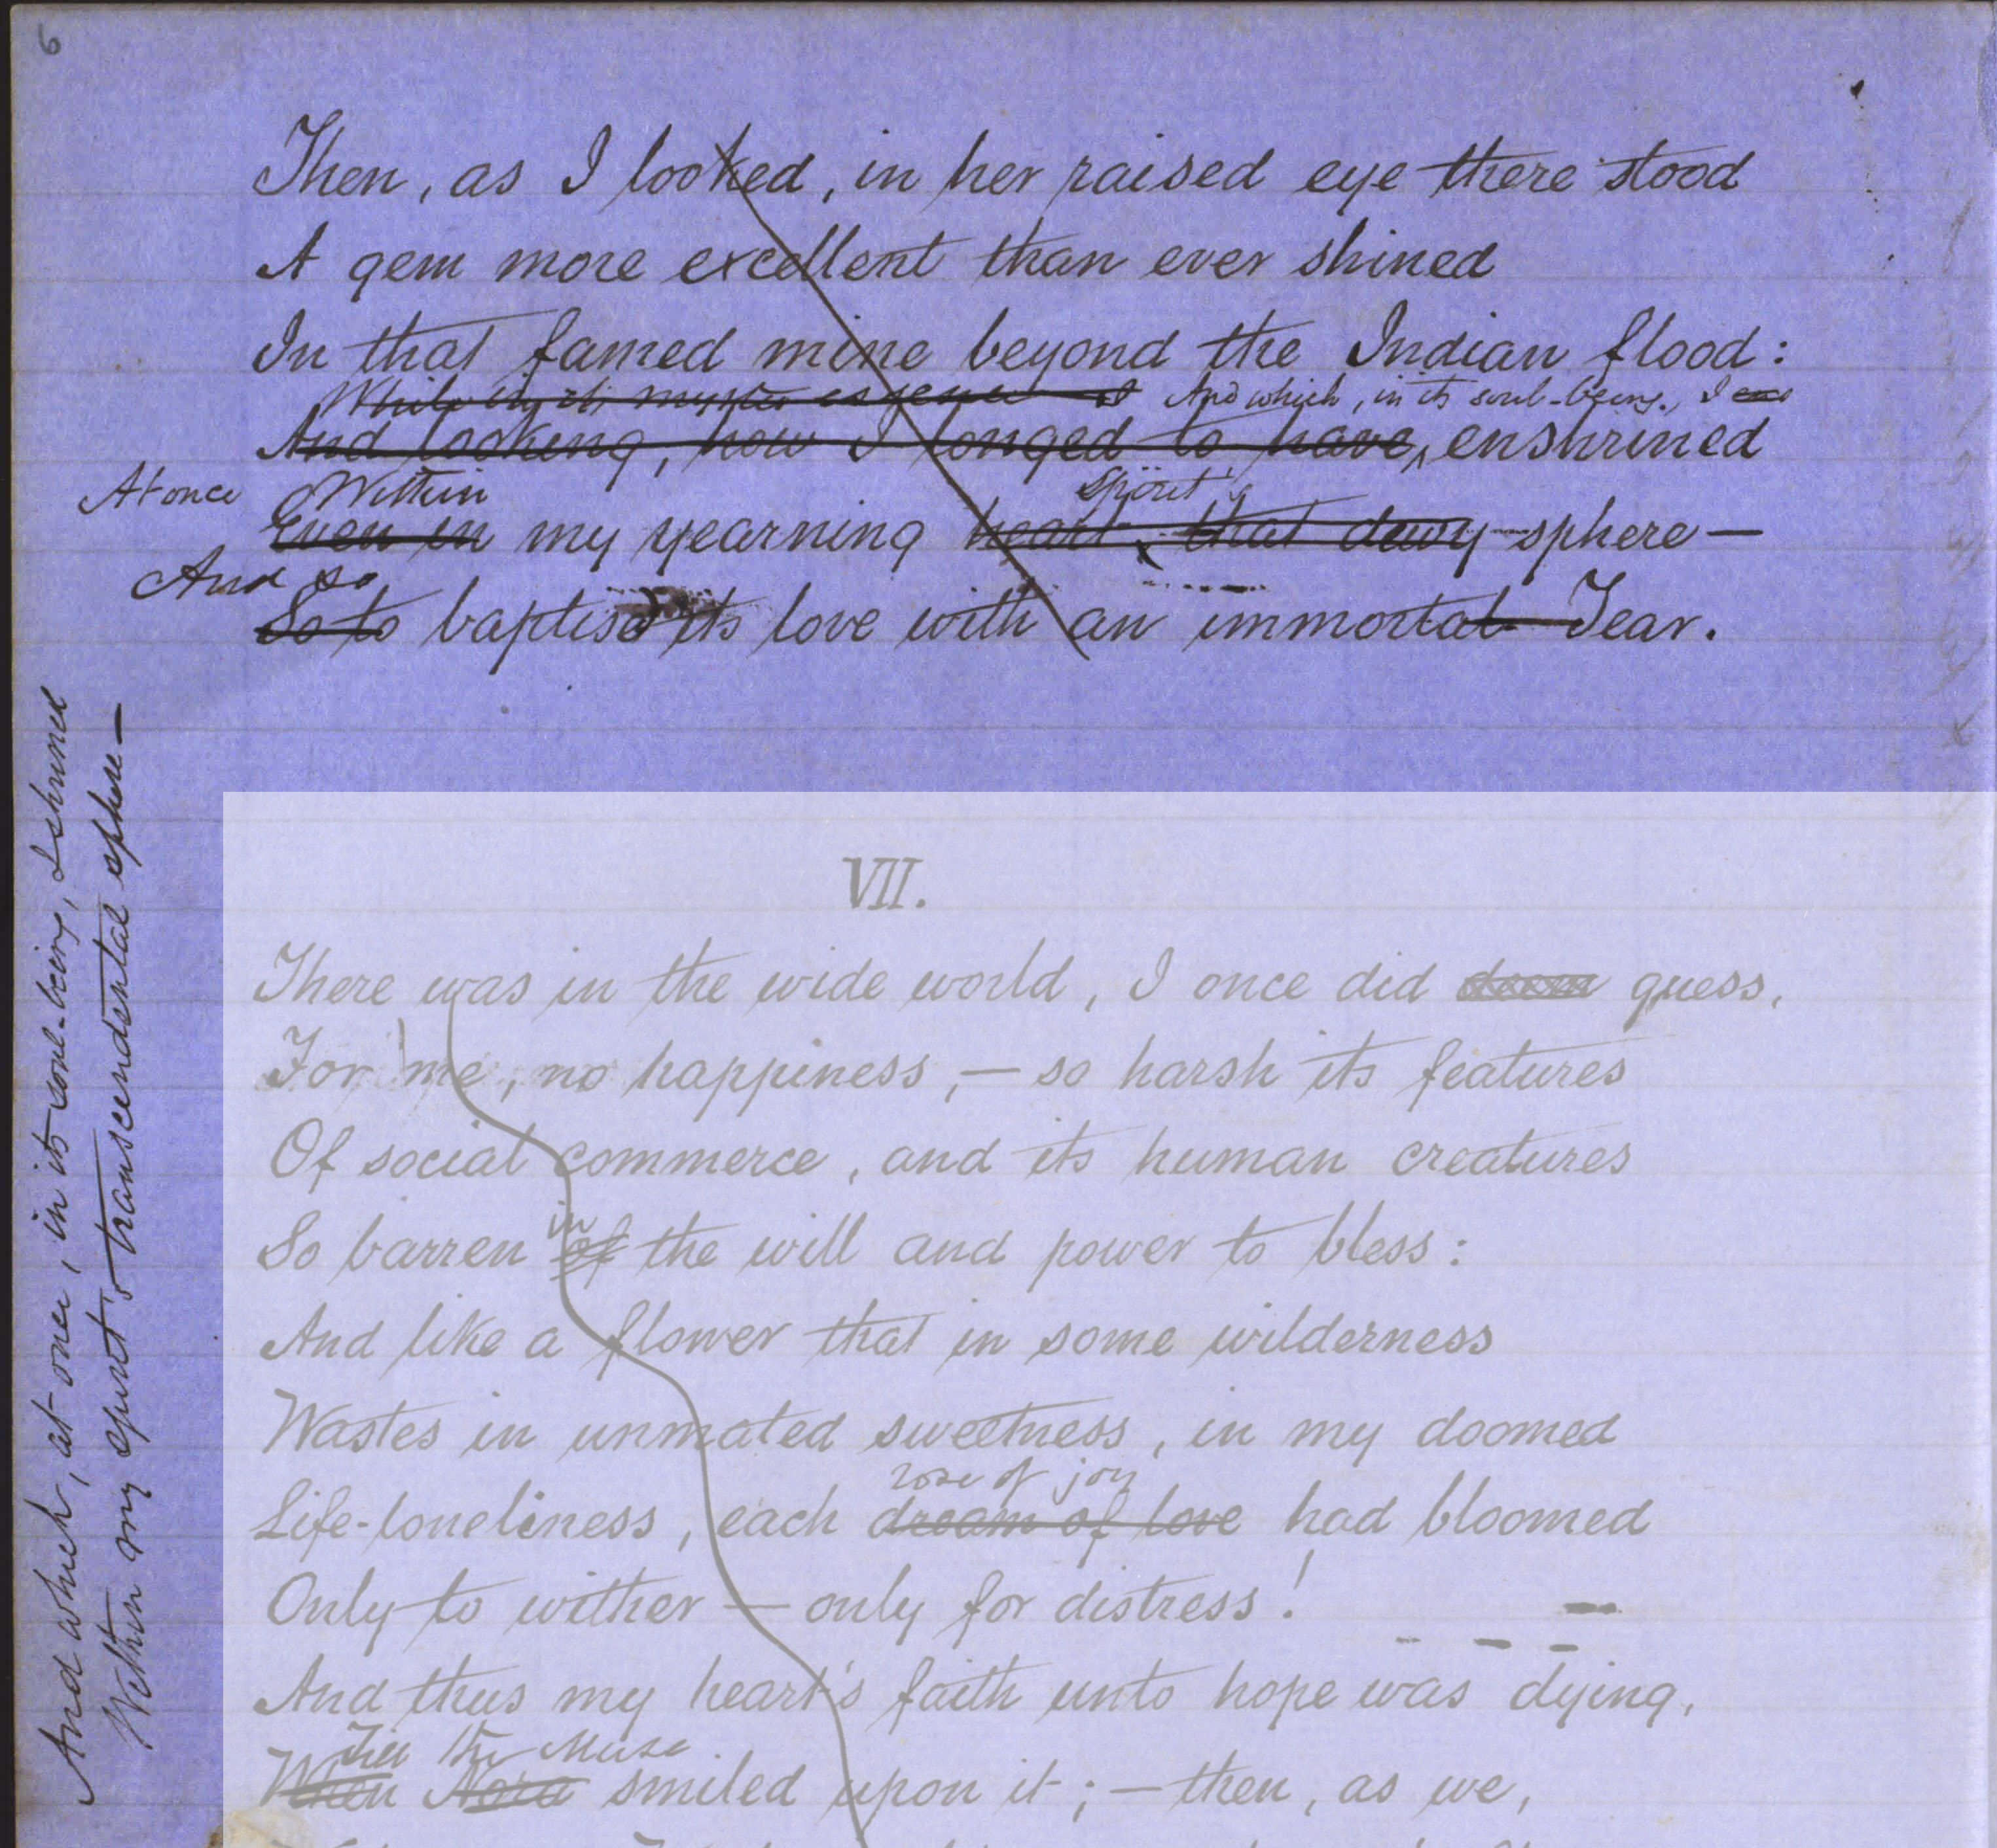 6
Then, as I looked, in her raised eye there stood
A gem more excellent than ever shined
In that famed mine beyond the Indian flood:
While in its mystic essence I And which, in its soul-being, I
And looking, how I longed to have, enshrined
At once Within spirit's
Even in my yearning heart, that dewy sphere —
And so
So to baptise its love with an immortal Tear.
And which, at once, in its soul-being, I shrined
Within my spirit's transcendental sphere —
VII.
There was in the wide world, I once did deem guess,
For me, no happiness, — so harsh its features
Of social commerce, and its human creatures
in
So barren of the will and power to bless:
And like a flower that in some wilderness
Wastes in unmated sweetness, in my doomed
rose of joy
Life-loneliness, each dream of love had bloomed
Only to wither — only for distress!
And thus my heart's faith unto hope was dying,
Till the Muse
When Nora smiled upon it; — then, as we,